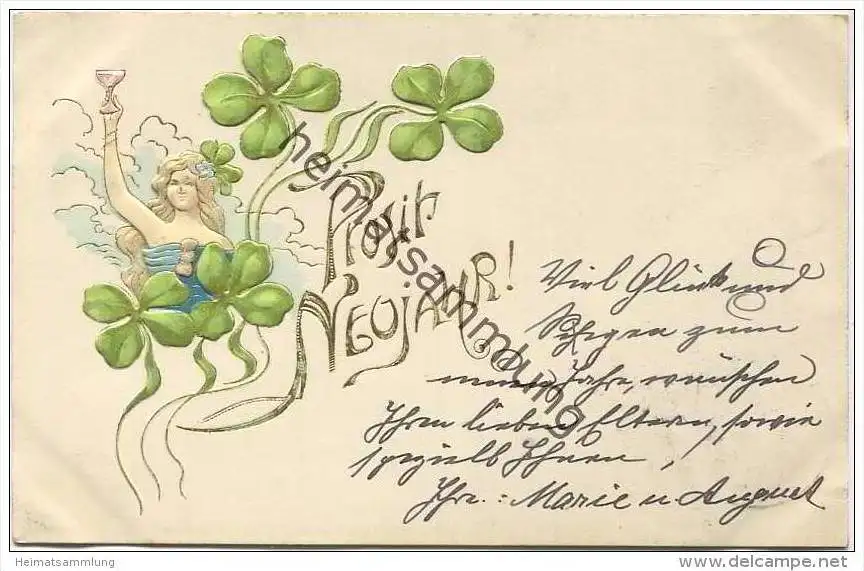 Prosit
NEUJAHR!
Viel Glück und
Segen zum
neuen Jahre, wünschen
Ihren lieben Eltern, sowie
speziell Ihnen,
Ihre.: Marie u August
heimatsammlung
Heimatsammlung
www.delcampe.net